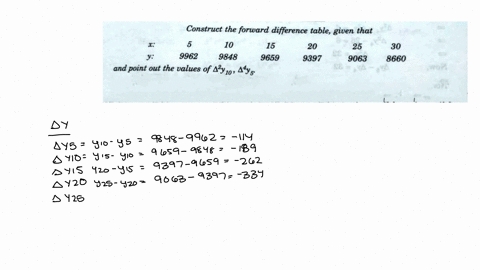 Construct the forward difference table, given that
x: 5 10 15 20 25 30
y: 9962 9848 9659 9397 9063 8660
and point out the values of Δ²y₁₀, Δ⁴y₅.
ΔY
ΔY5 = y10 - y5 = 9848 - 9962 = -114
ΔY10 = y15 - y10 = 9659 - 9848 = -189
ΔY15 y20 - y15 = 9397 - 9659 = -262
ΔY20 y25 - y20 = 9063 - 9397 = -334
ΔY25